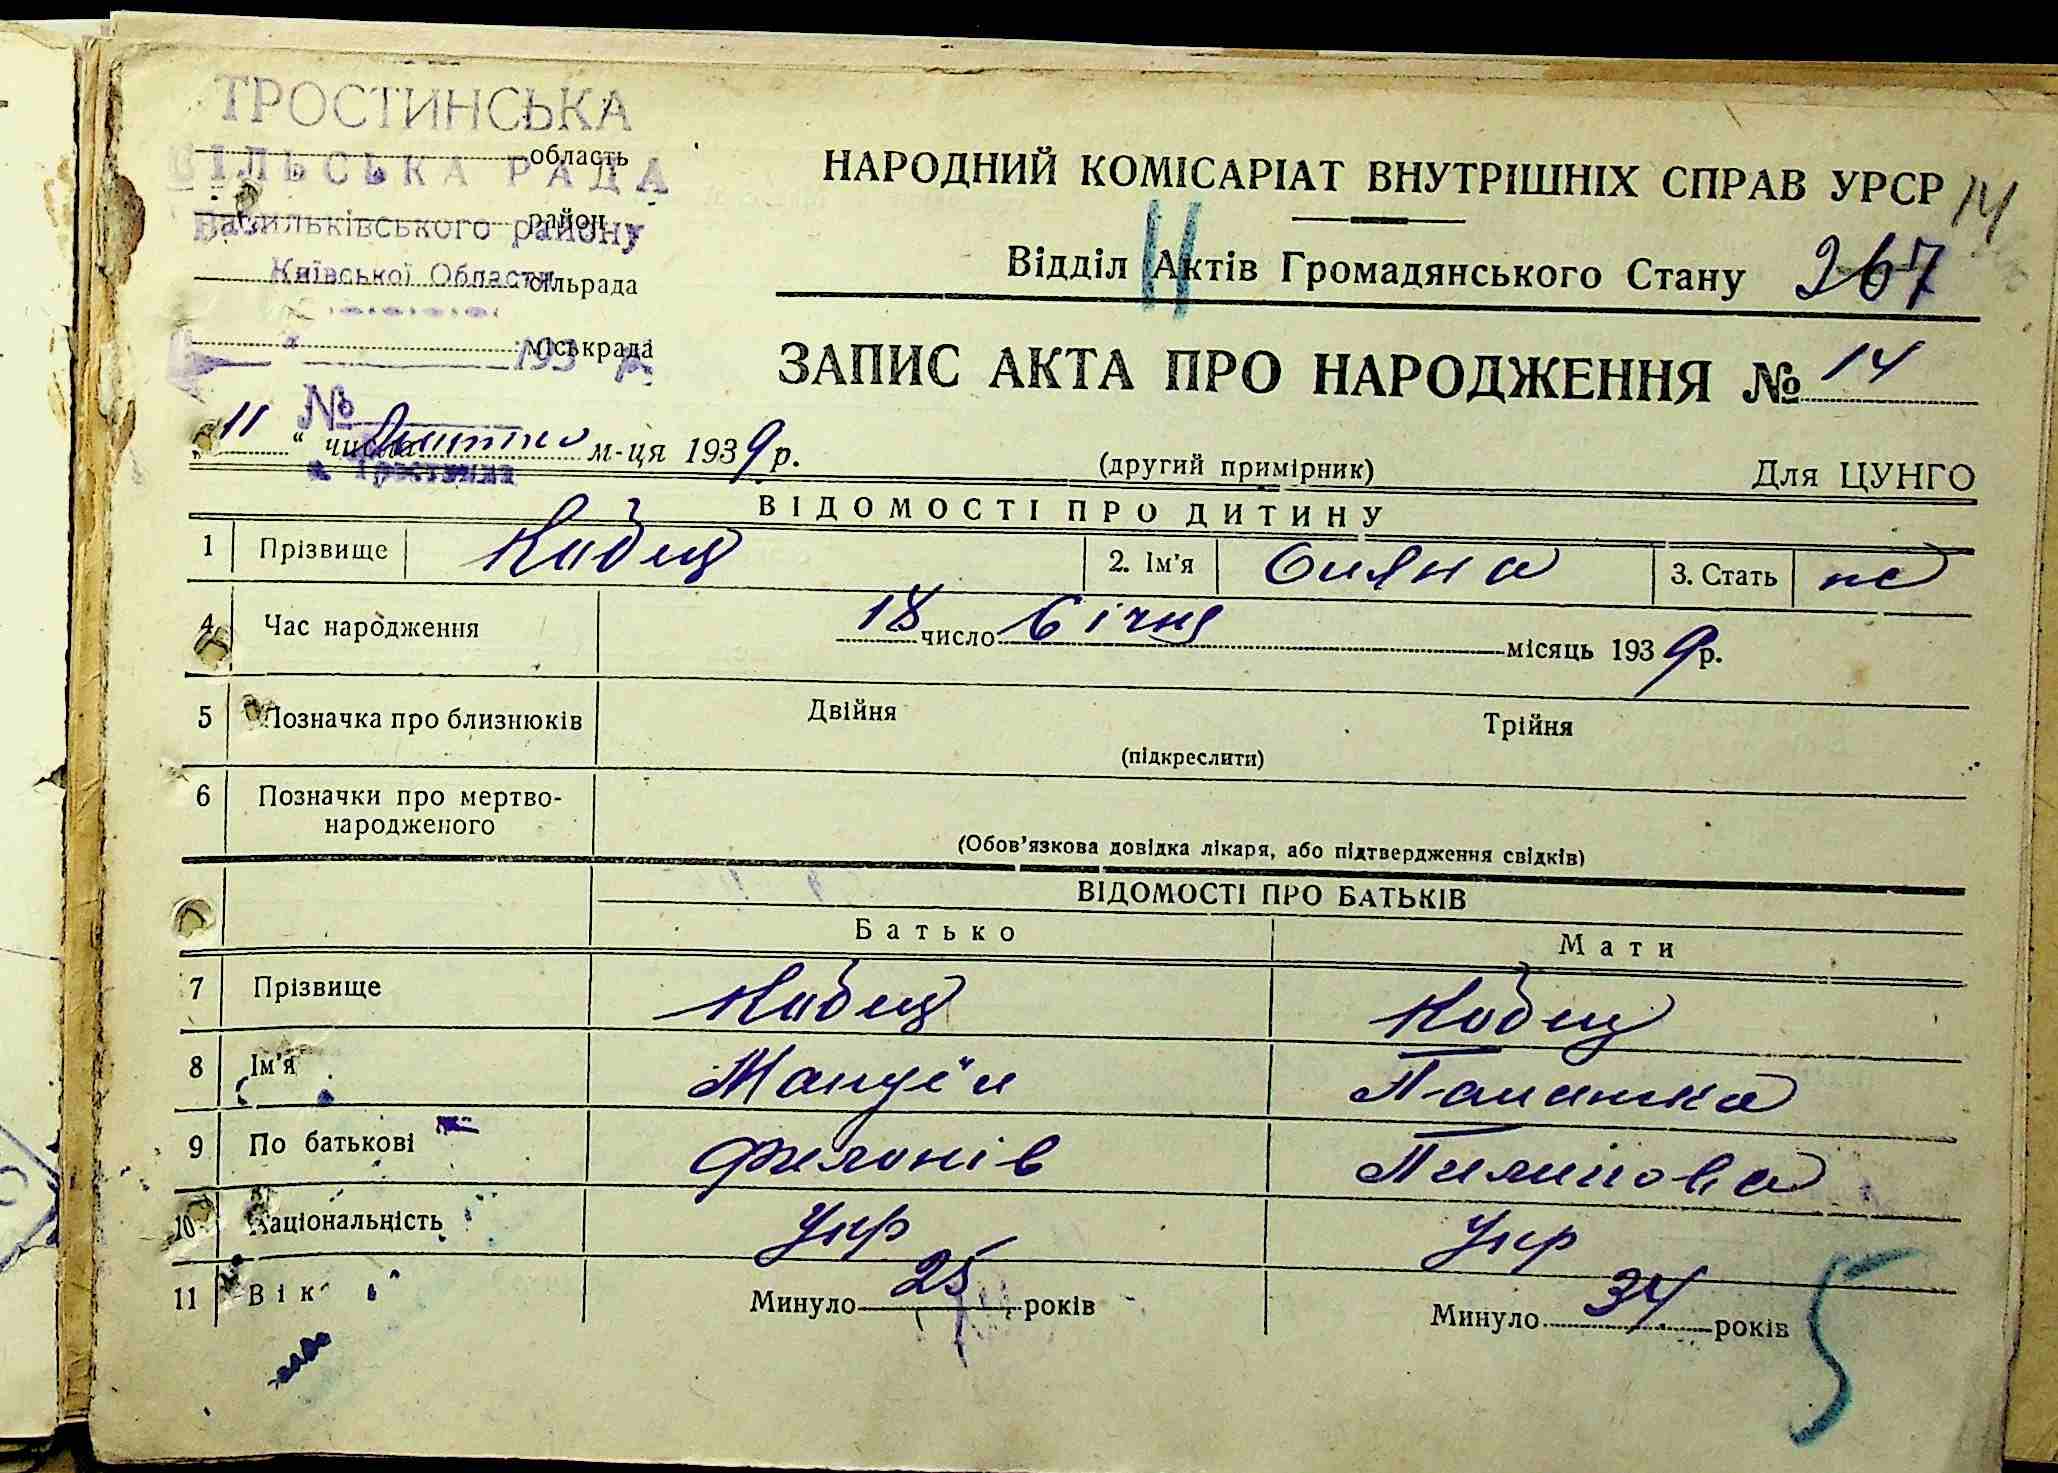 ТРОСТИНСЬКА
область
СІЛЬСЬКА РАДА
район
Васильківського району
Київської Області
сільрада
міськрада
193 р.
№
НАРОДНИЙ КОМІСАРІАТ ВНУТРІШНІХ СПРАВ УРСР
14
Відділ Актів Громадянського Стану
267
ЗАПИС АКТА ПРО НАРОДЖЕННЯ № 14
11 " числа Лютого м-ця 1939 р.
(другий примірник)
Для ЦУНГО
ВІДОМОСТІ ПРО ДИТИНУ
1 Прізвище Кобец 2. Ім'я Оляна 3. Стать
4 Час народження 18 число Січня місяць 1939 р.
5 Позначка про близнюків Двійня Трійня
(підкреслити)
6 Позначки про мертво-
народженого
(Обов'язкова довідка лікаря, або підтвердження свідків)
ВІДОМОСТІ ПРО БАТЬКІВ
Батько Мати
7 Прізвище Кобец Кобец
8 Ім'я Мануїл Палашка
9 По батькові Филонів Пилипова
10 Національність Укр Укр
11 Вік Минуло 25 років Минуло 34 років
5